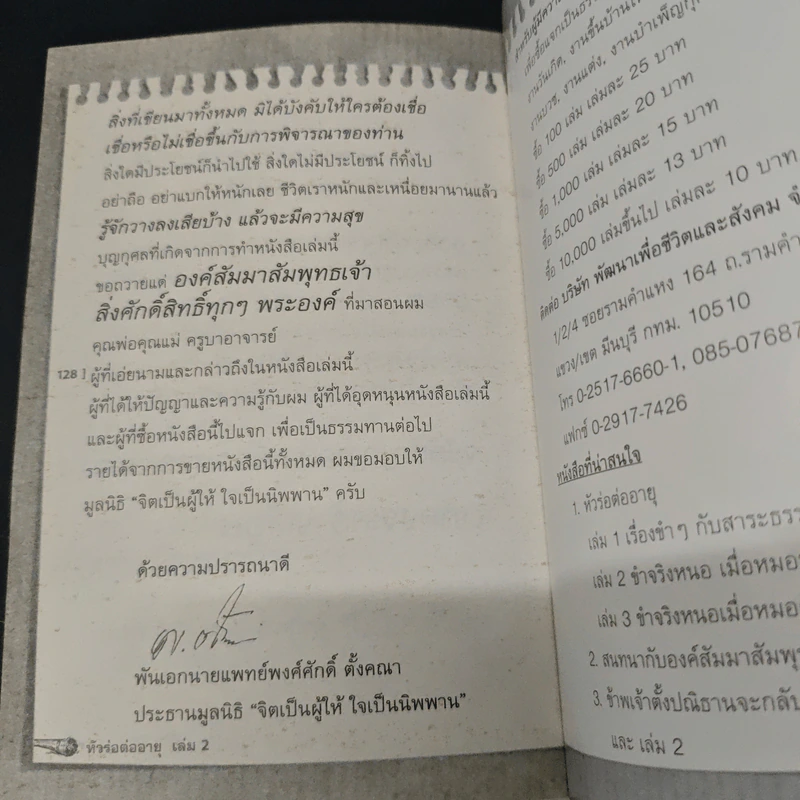 สิ่งที่เขียนมาทั้งหมด มิได้บังคับให้ใครต้องเชื่อ
เชื่อหรือไม่เชื่อขึ้นกับการพิจารณาของท่าน
สิ่งใดมีประโยชน์ก็นำไปใช้ สิ่งใดไม่มีประโยชน์ ก็ทิ้งไป
อย่าถือ อย่าแบกให้หนักเลย ชีวิตเราหนักและเหนื่อยมานานแล้ว
รู้จักวางลงเสียบ้าง แล้วจะมีความสุข
บุญกุศลที่เกิดจากการทำหนังสือเล่มนี้
ขอถวายแด่ องค์สัมมาสัมพุทธเจ้า
สิ่งศักดิ์สิทธิ์ทุกๆ พระองค์ ที่มาสอนผม
คุณพ่อคุณแม่ ครูบาอาจารย์
128 ผู้ที่เอ่ยนามและกล่าวถึงในหนังสือเล่มนี้
ผู้ที่ได้ให้ปัญญาและความรู้กับผม ผู้ที่ได้อุดหนุนหนังสือเล่มนี้
และผู้ที่ซื้อหนังสือนี้ไปแจก เพื่อเป็นธรรมทานต่อไป
รายได้จากการขายหนังสือนี้ทั้งหมด ผมขอมอบให้
มูลนิธิ “จิตเป็นผู้ให้ ใจเป็นนิพพาน” ครับ
ด้วยความปรารถนาดี
พันเอกนายแพทย์พงศ์ศักดิ์ ตั้งคณา
ประธานมูลนิธิ “จิตเป็นผู้ให้ ใจเป็นนิพพาน”
หัวร่อต่ออายุ เล่ม 2
สำหรับผู้มีความ
เพื่อซื้อแจกเป็นธรร
งานวันเกิด, งานขึ้นบ้านให
งานบวช, งานแต่ง, งานบำเพ็ญกุ
ซื้อ 100 เล่ม เล่มละ 25 บาท
ซื้อ 500 เล่ม เล่มละ 20 บาท
ซื้อ 1,000 เล่ม เล่มละ 15 บาท
ซื้อ 5,000 เล่ม เล่มละ 13 บาท
ซื้อ 10,000 เล่มขึ้นไป เล่มละ 10 บาท
ติดต่อ บริษัท พัฒนาเพื่อชีวิตและสังคม จํ
1/2/4 ซอยรามคำแหง 164 ถ.รามคำ
แขวง/เขต มีนบุรี กทม. 10510
โทร 0-2517-6660-1, 085-07687
แฟกซ์ 0-2917-7426
หนังสือที่น่าสนใจ
1. หัวร่อต่ออายุ
เล่ม 1 เรื่องขำๆ กับสาระธรร
เล่ม 2 ขำจริงหนอ เมื่อหมอ
เล่ม 3 ขำจริงหนอเมื่อหมอ
2. สนทนากับองค์สัมมาสัมพุท
3. ข้าพเจ้าตั้งปณิธานจะกลับ
และ เล่ม 2